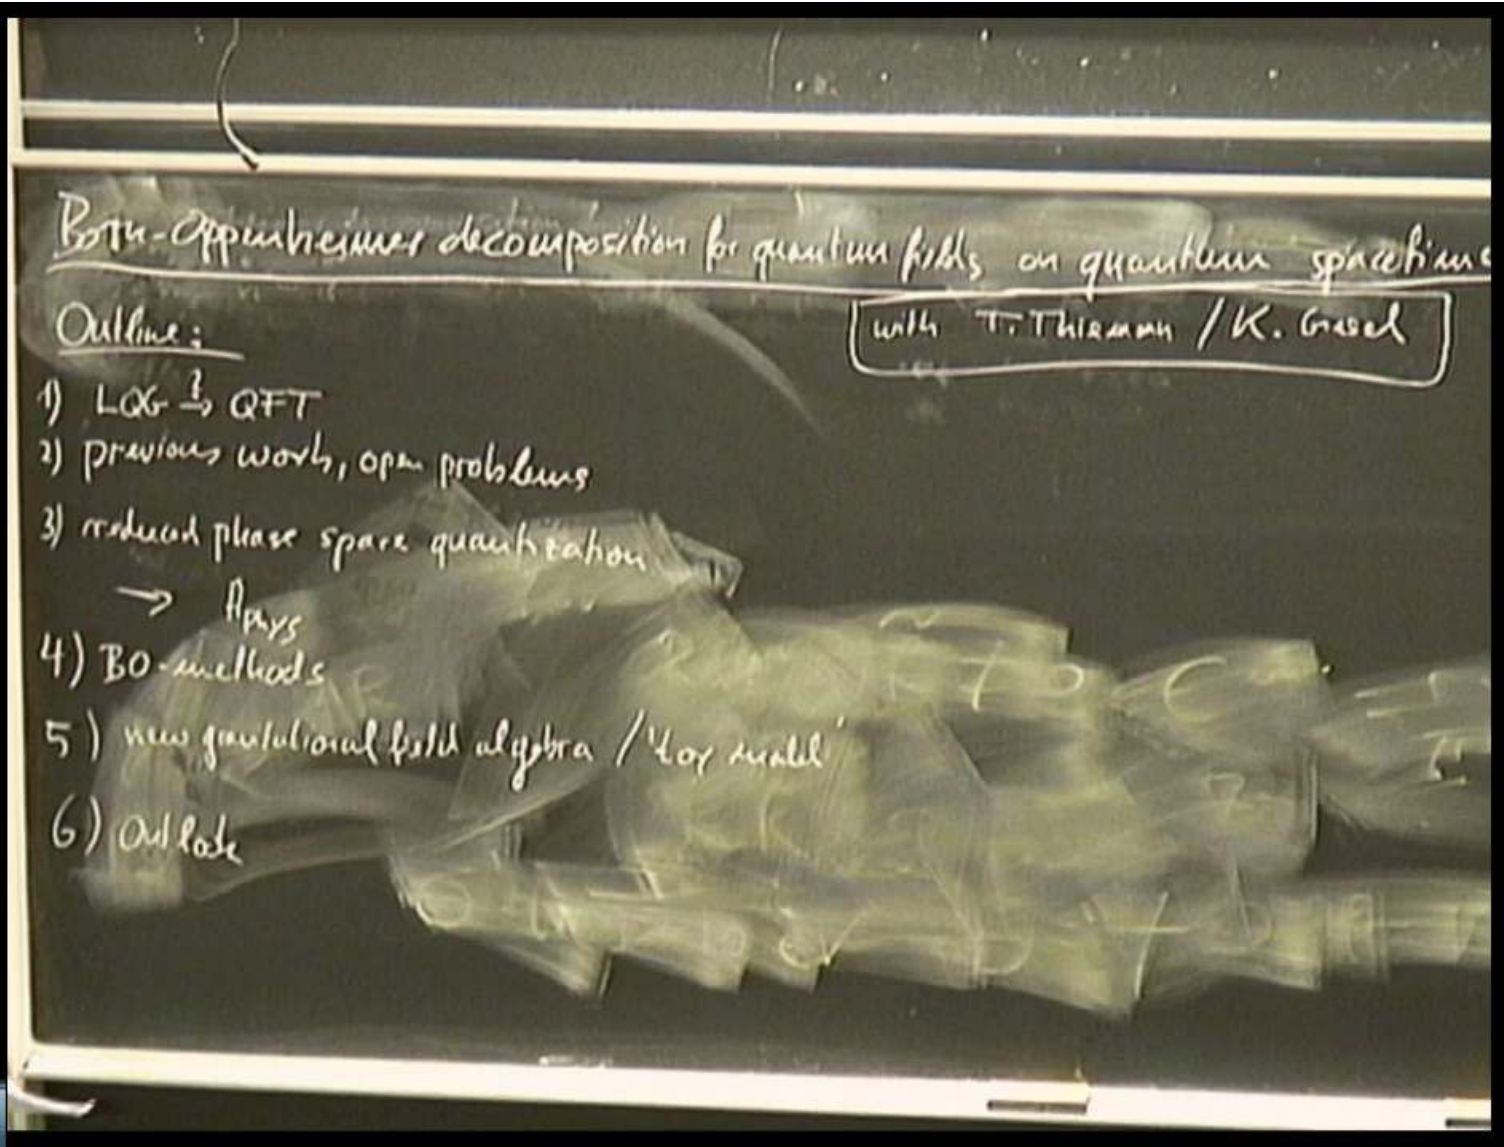 Born-Oppenheimer decomposition for quantum fields on quantum spacetime
with T. Thiemann / K. Giesel
Outline:
1) LQG →? QFT
2) previous work, open problems
3) reduced phase space quantization
→ Aphys
4) BO-methods
5) new gravitational field algebra / 'toy model'
6) Outlook